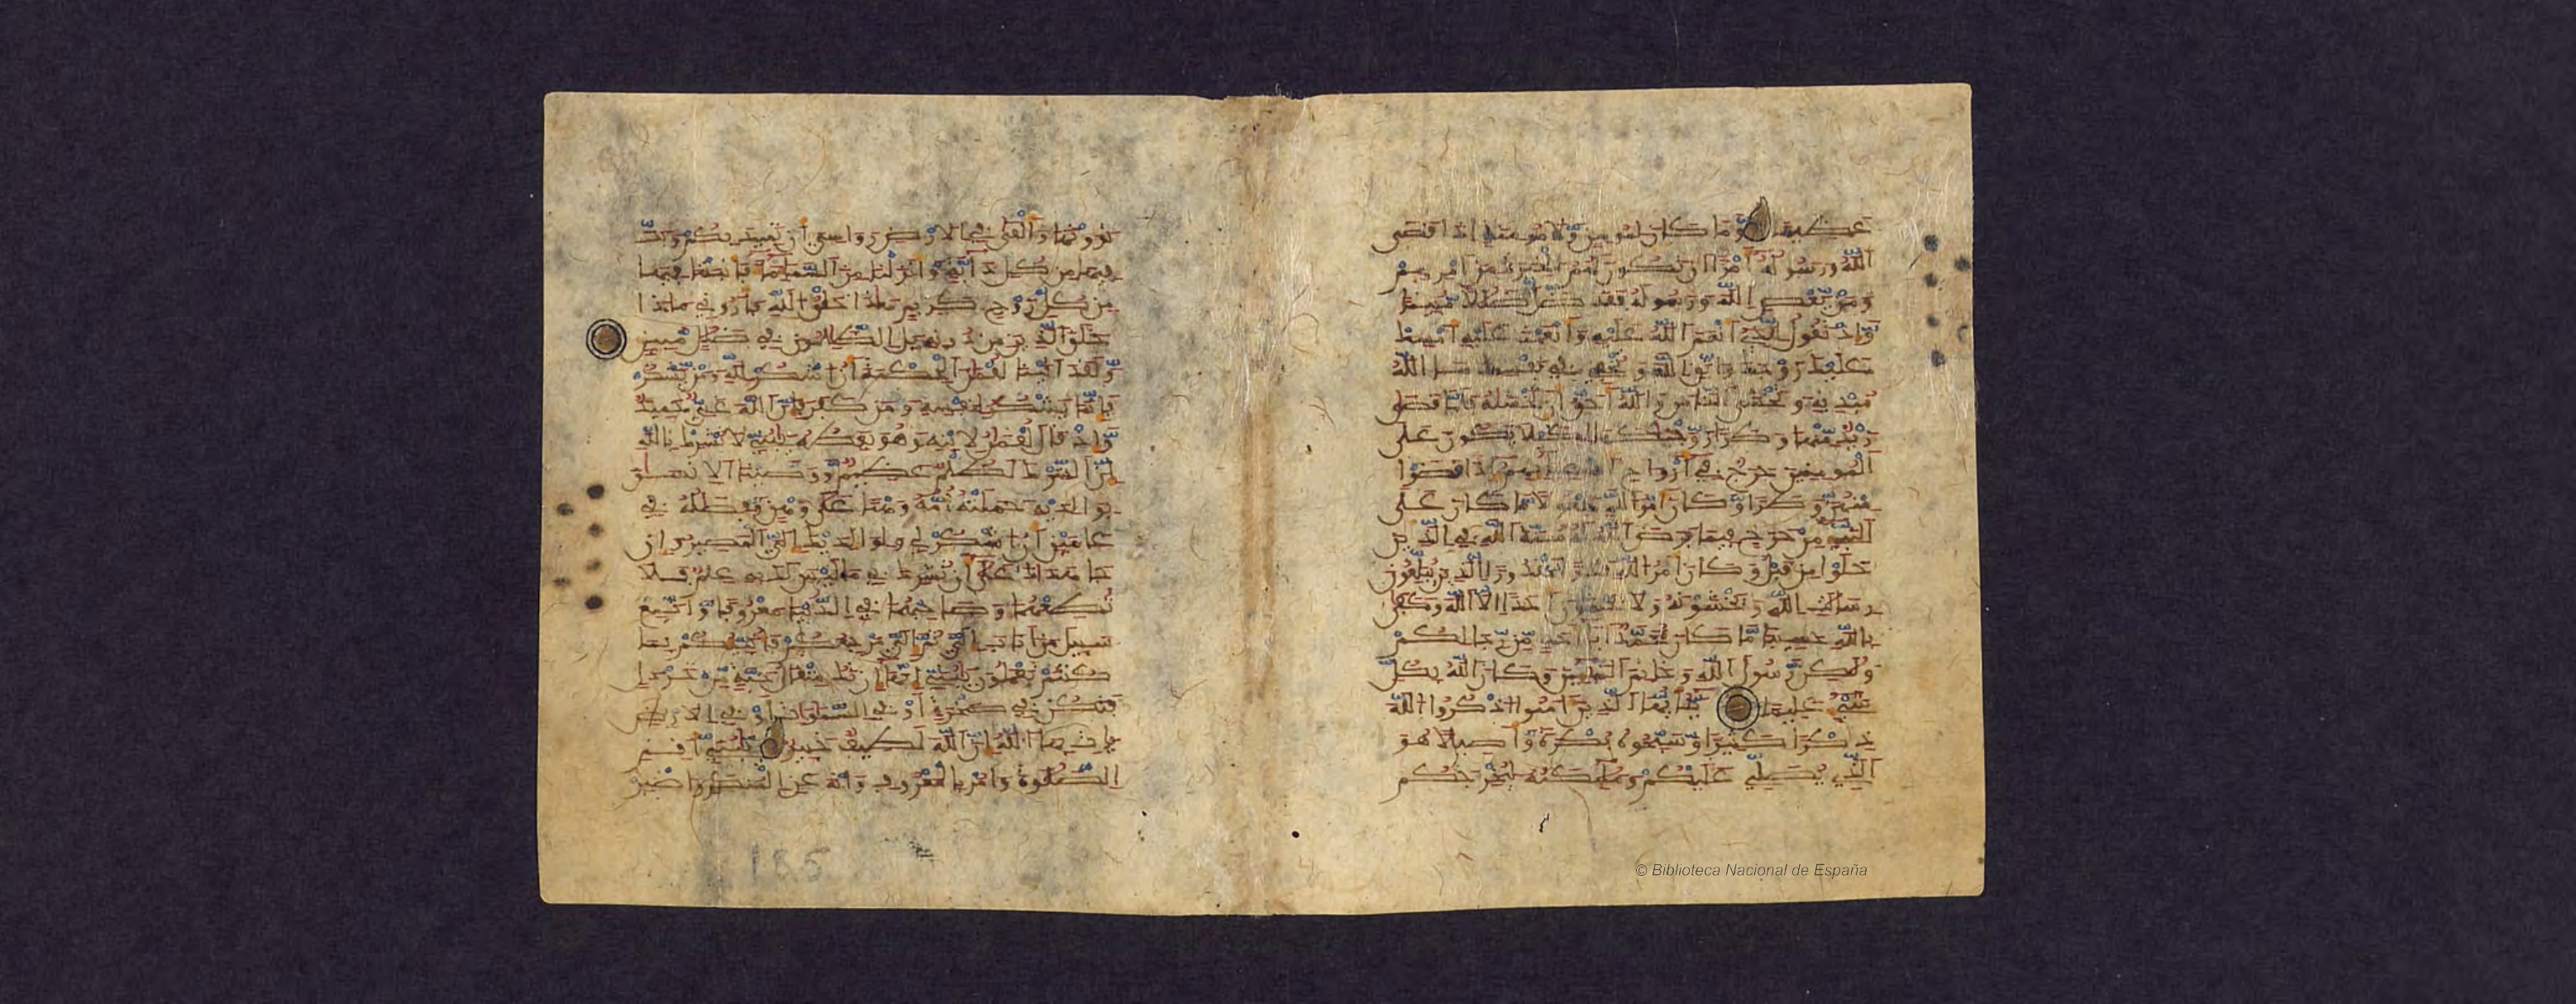 عظيما وما كان لمومن ولا مومنة اذا قضى
الله ورسوله امرا ان تكون لهم الخيرة من امرهم
ومن يعص الله ورسوله فقد ضل ضللا مبينا
واذ تقول للذي انعم الله عليه وانعمت عليه امسك
عليك زوجك واتق الله وتخفي في نفسك ما الله
مبديه وتخشى الناس والله احق ان تخشىه فلما قضى
زيد منها وطرا زوجنكها لكيلا يكون على
المومنين حرج في ازواج ادعيائهم اذا قضوا
منهن وطرا وكان امر الله مفعولا ما كان على
النبي من حرج فيما فرض الله له سنة الله في الذين
خلوا من قبل وكان امر الله قدرا مقدورا الذين يبلغون
رسالت الله ويخشونه ولا يخشون احدا الا الله وكفى
بالله حسيبا ما كان محمد ابا احد من رجالكم
ولكن رسول الله وخاتم النبيين وكان الله بكل
شيء عليما يايها الذين امنوا اذكروا الله
ذكرا كثيرا وسبحوه بكرة واصيلا هو
الذي يصلي عليكم وملئكته ليخرجكم
ترونها والقى في الارض رواسي ان تميد بكم وبث
فيها من كل دابة وانزلنا من السماء ماء فانبتنا فيها
من كل زوج كريم هذا خلق الله فاروني ماذا
خلق الذين من دونه بل الظلمون في ضلل مبين
ولقد اتينا لقمن الحكمة ان اشكر لله ومن يشكر
فانما يشكر لنفسه ومن كفر فان الله غني حميد
واذ قال لقمن لابنه وهو يعظه يبني لا تشرك بالله
ان الشرك لظلم عظيم ووصينا الانسن
بوالديه حملته امه وهنا على وهن وفصله في
عامين ان اشكر لي ولوالديك الي المصير وان
جاهداك على ان تشرك بي ما ليس لك به علم فلا
تطعهما وصاحبهما في الدنيا معروفا واتبع
سبيل من اناب الي ثم الي مرجعكم فانبئكم بما
كنتم تعملون يبني انها ان تك مثقال حبة من خردل
فتكن في صخرة او في السموت او في الارض
يات بها الله ان الله لطيف خبير يبني اقم
الصلوة وامر بالمعروف وانه عن المنكر واصبر
185
© Biblioteca Nacional de España